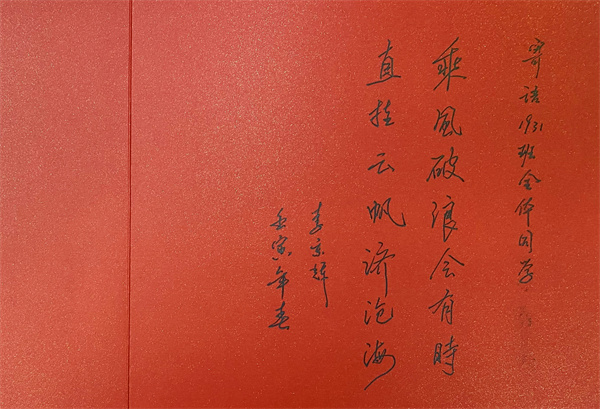 寄语1931班全体同学
乘风破浪会有時
直挂云帆济沧海
李京辉
壬寅年春